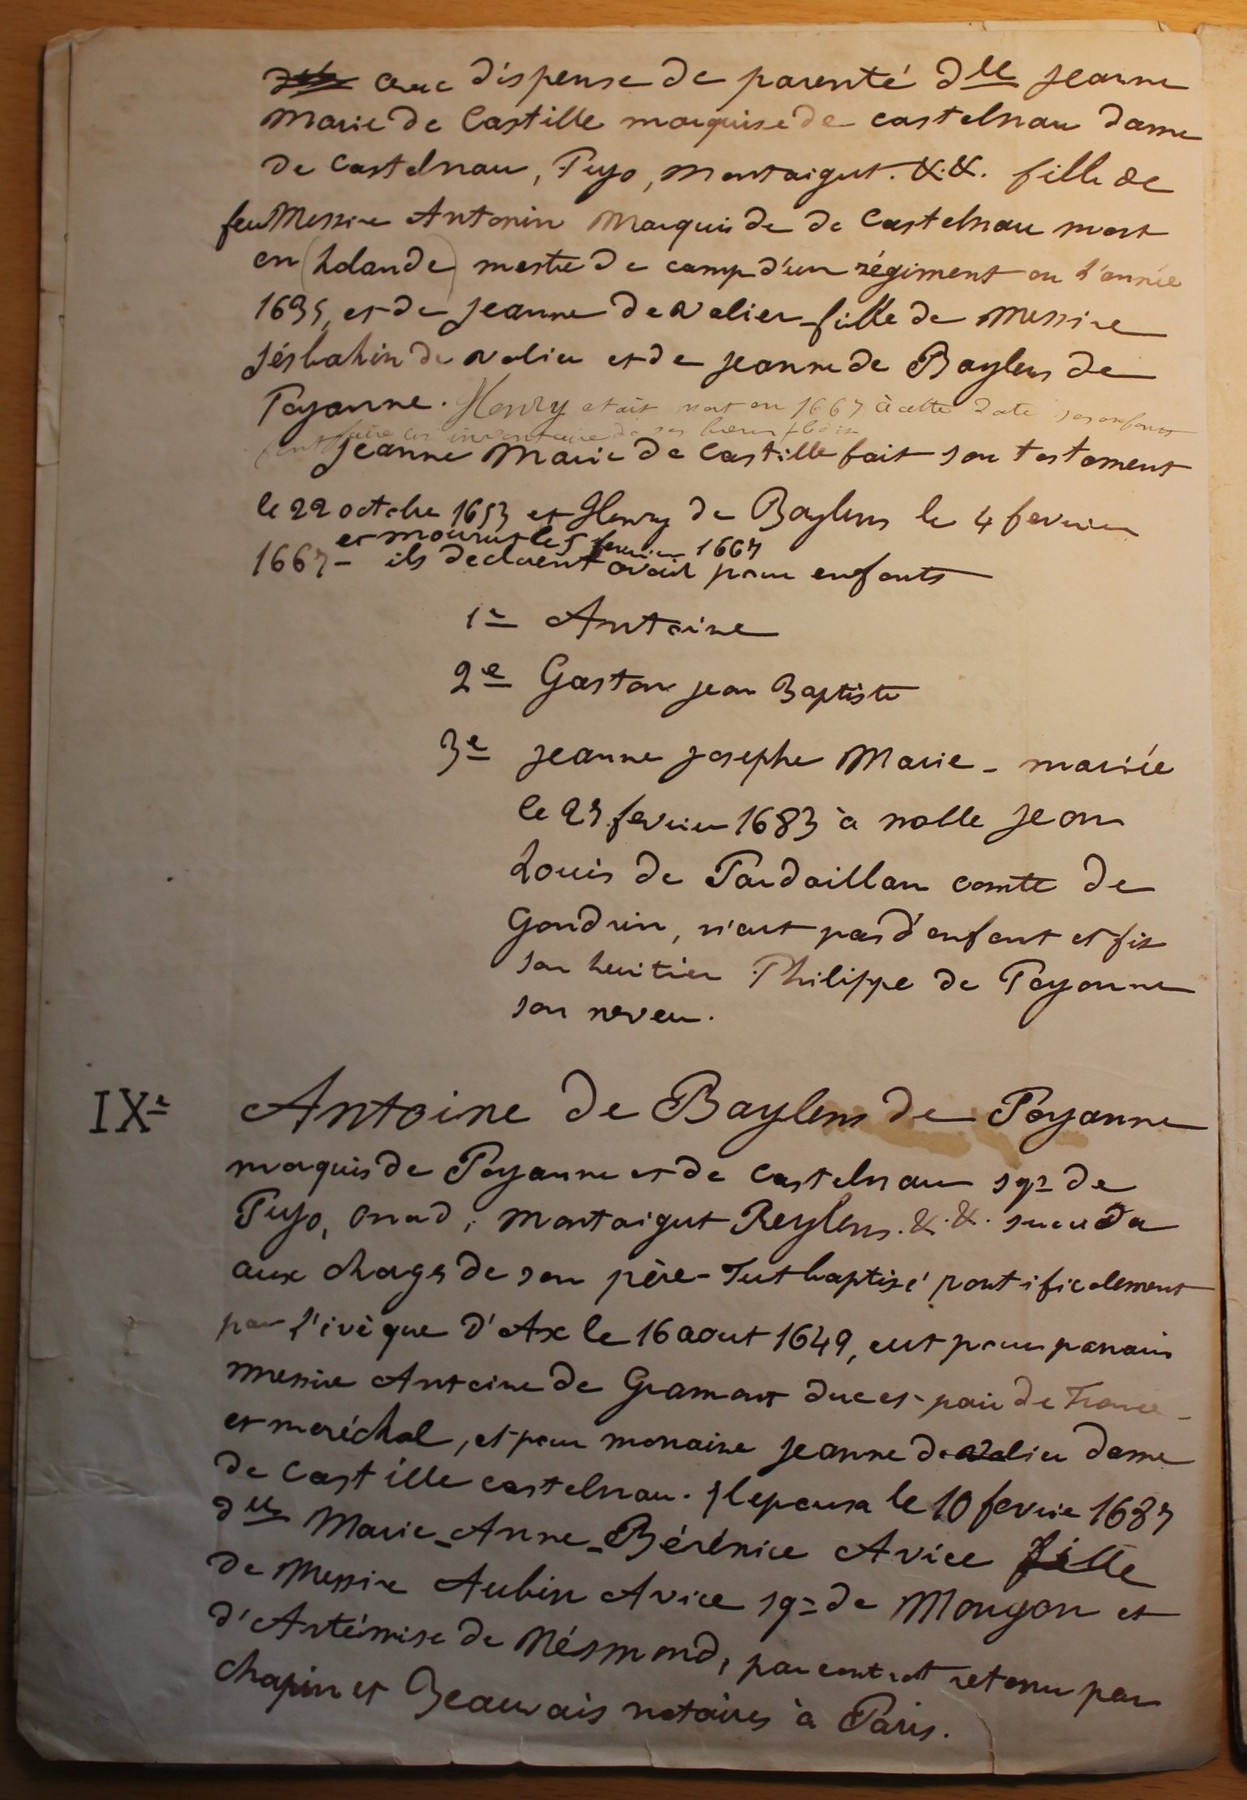 avec dispense de parenté dlle jeanne
Marie de Castille marquise de castelnau dame
de castelnau, Puyo, Montaigut. &.&. fille de
feu Messire Antonin Marquis de de Castelnau mort
en (holande) mestre de camp d'un régiment en l'année
1635, et de jeanne de Valier fille de Messire
de valier et de jeanne de Baylens de
Poyanne. Henry etait mort en 1667 à cette date ses enfants
font faire un inventaire de ses biens
jeanne Marie de Castille fait son testament
le 22 octobre 1653 et Henry de Baylens le 4 fevrier
et mourut le 5 fevrier 1667
1667 - ils declarent avoir pour enfants
1e Antoine
2e Gaston jean Baptiste
3e jeanne josephe Marie - mariée
le 23 fevrier 1683 à noble jean
Louis de Pardaillan comte de
Gondrin, n'eut pas d'enfant et fit
son heritier Philippe de Poyanne
son neveu.
IXe Antoine de Baylens de Poyanne
marquis de Poyanne et de Castelnau sgr de
Puyo, onad, Montaigut Reylens. &.&. succeda
aux charges de son père - Fut baptisé pontificalement
par l'évêque d'Ax le 16 aout 1649, eut pour parrain
messire Antoine de Gramont duc et pair de France
et maréchal, et pour marraine jeanne de valier dame
de Castille castelnau. Il epousa le 10 fevrie 1683
dlle Marie-Anne-Bérénice Avice fille
de Messire Aubin Avice sgr de Mougon et
d'Artémise de Nésmond, par contrat retenu par
chapin et Beauvais notaires à Paris.